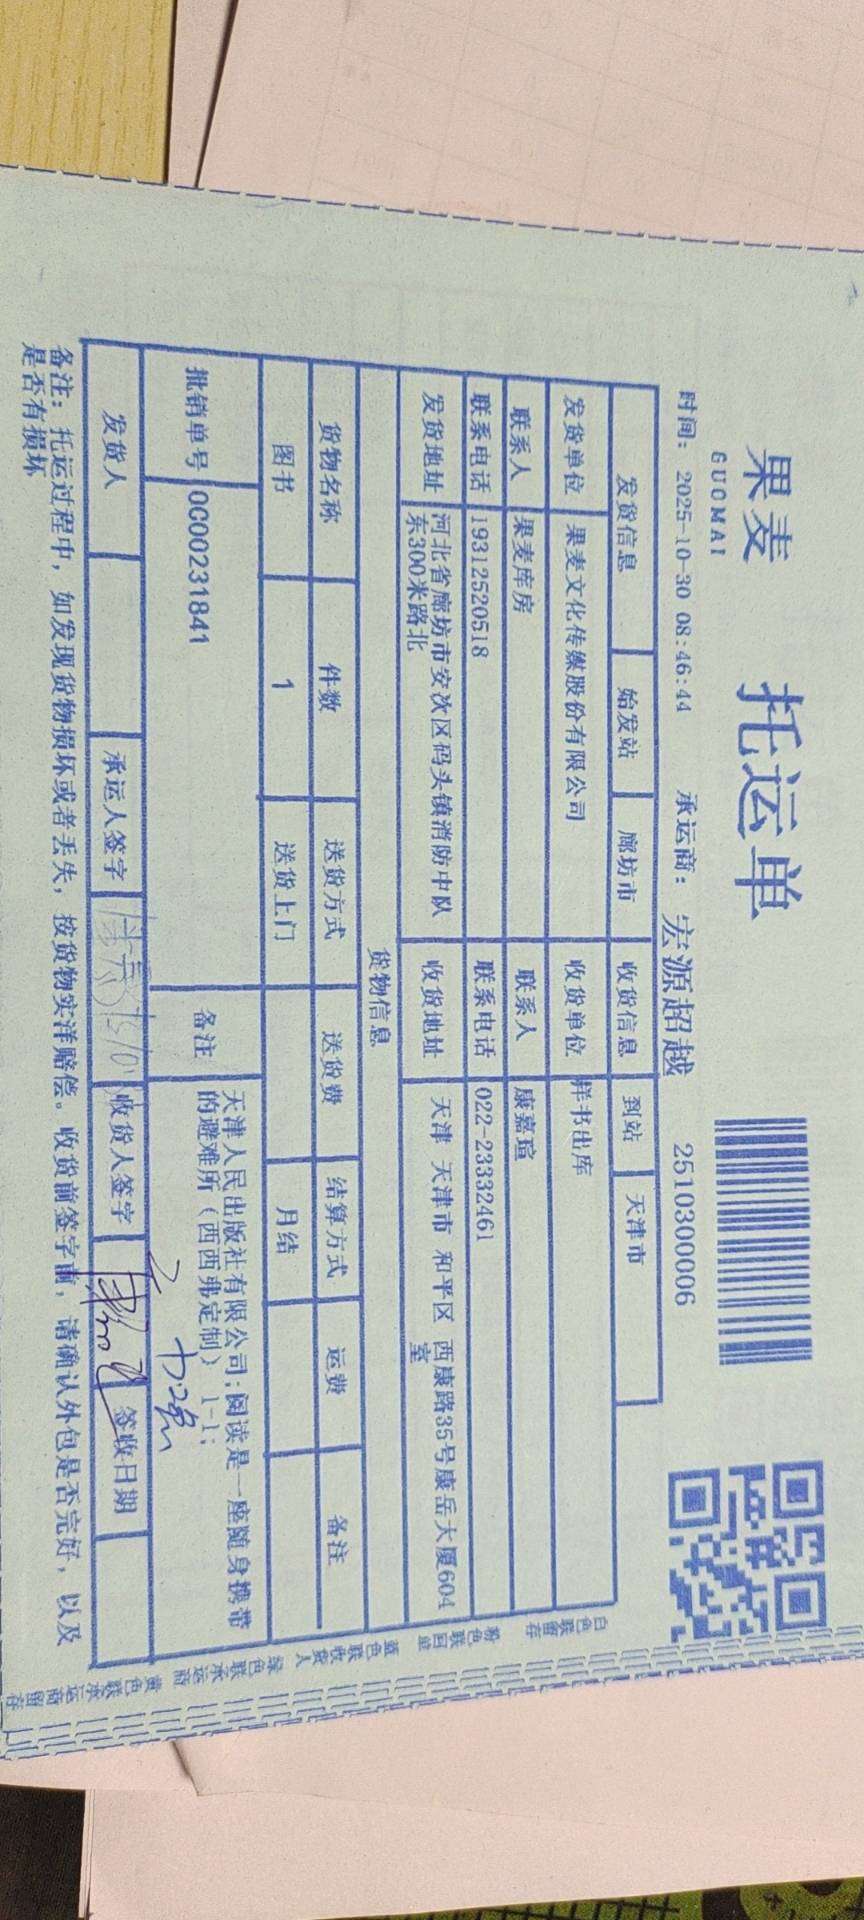 果麦
GUOMAI
托运单
时间: 2025-10-30 08:46:44 承运商: 宏源超越 2510300006
发货信息 始发站 廊坊市 收货信息 到站 天津市
发货单位 果麦文化传媒股份有限公司 收货单位 样书出库
联系人 果麦库房 联系人 康嘉瑄
联系电话 19312520518 联系电话 022-23332461
发货地址 河北省廊坊市安次区码头镇消防中队
东300米路北
收货地址 天津 天津市 和平区 西康路35号康岳大厦604
室
货物信息
货物名称 件数 送货方式 送货费 结算方式 运费 备注
图书 1 送货上门 月结
批销单号 0C00231841 备注 天津人民出版社有限公司:阅读是一座随身携带
的避难所（西西弗定制） 1-1;
发货人 承运人签字 收货人签字 签收日期
备注: 托运过程中, 如发现货物损坏或者丢失, 按货物实洋赔偿。收货前签字前, 请确认外包是否完好, 以及
是否有损坏
白色联留存
粉色联回单
蓝色联收货人
绿色联承运商
黄色联承运商留存